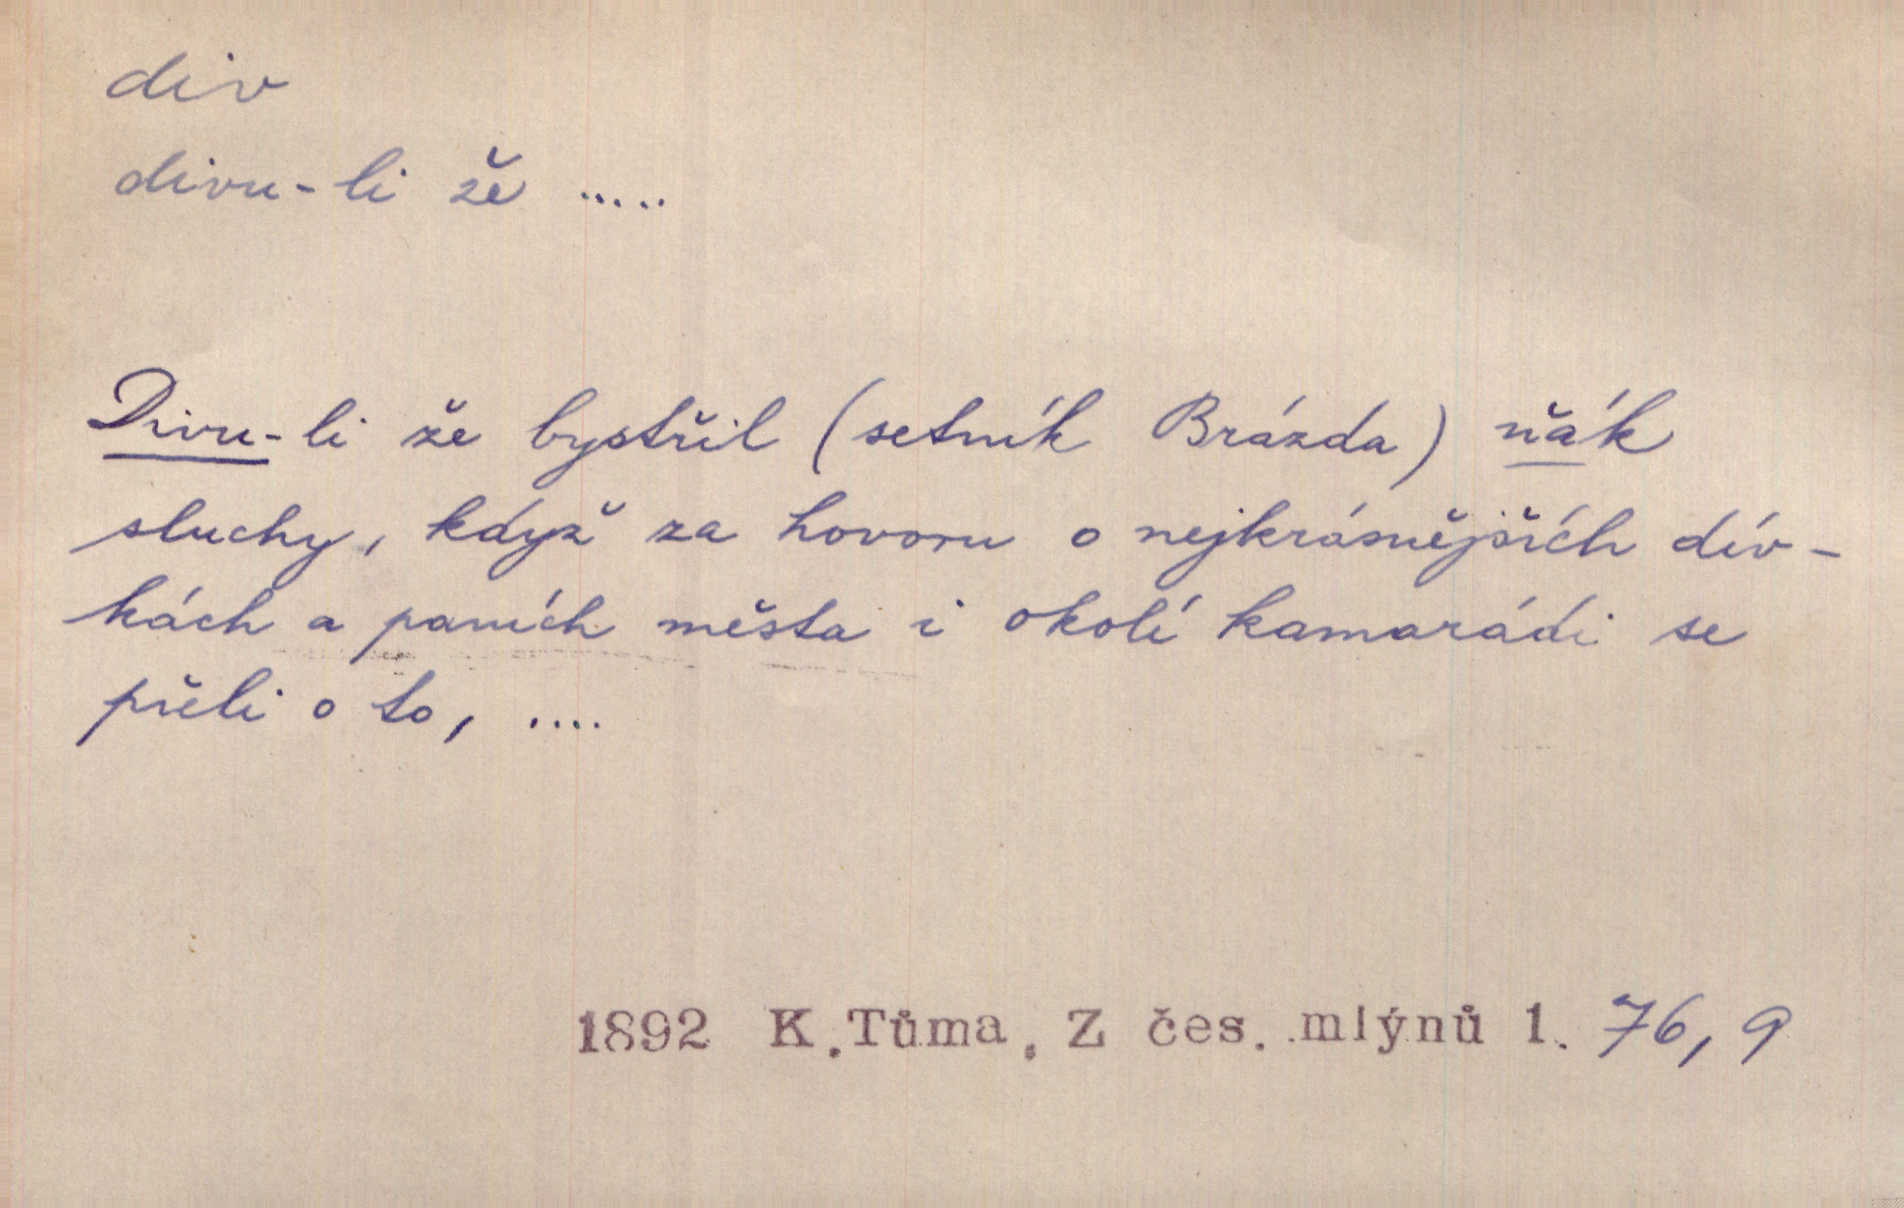 div
divu-li že .....
Divu-li že bystřil (setník Brázda) ňák
sluchy, když za hovoru o nejkrásnějších dív-
kách a paních města i okolí kamarádi se
přeli o to, ....
1892 K.Tůma, Z čes. mlýnů 1. 76, 9